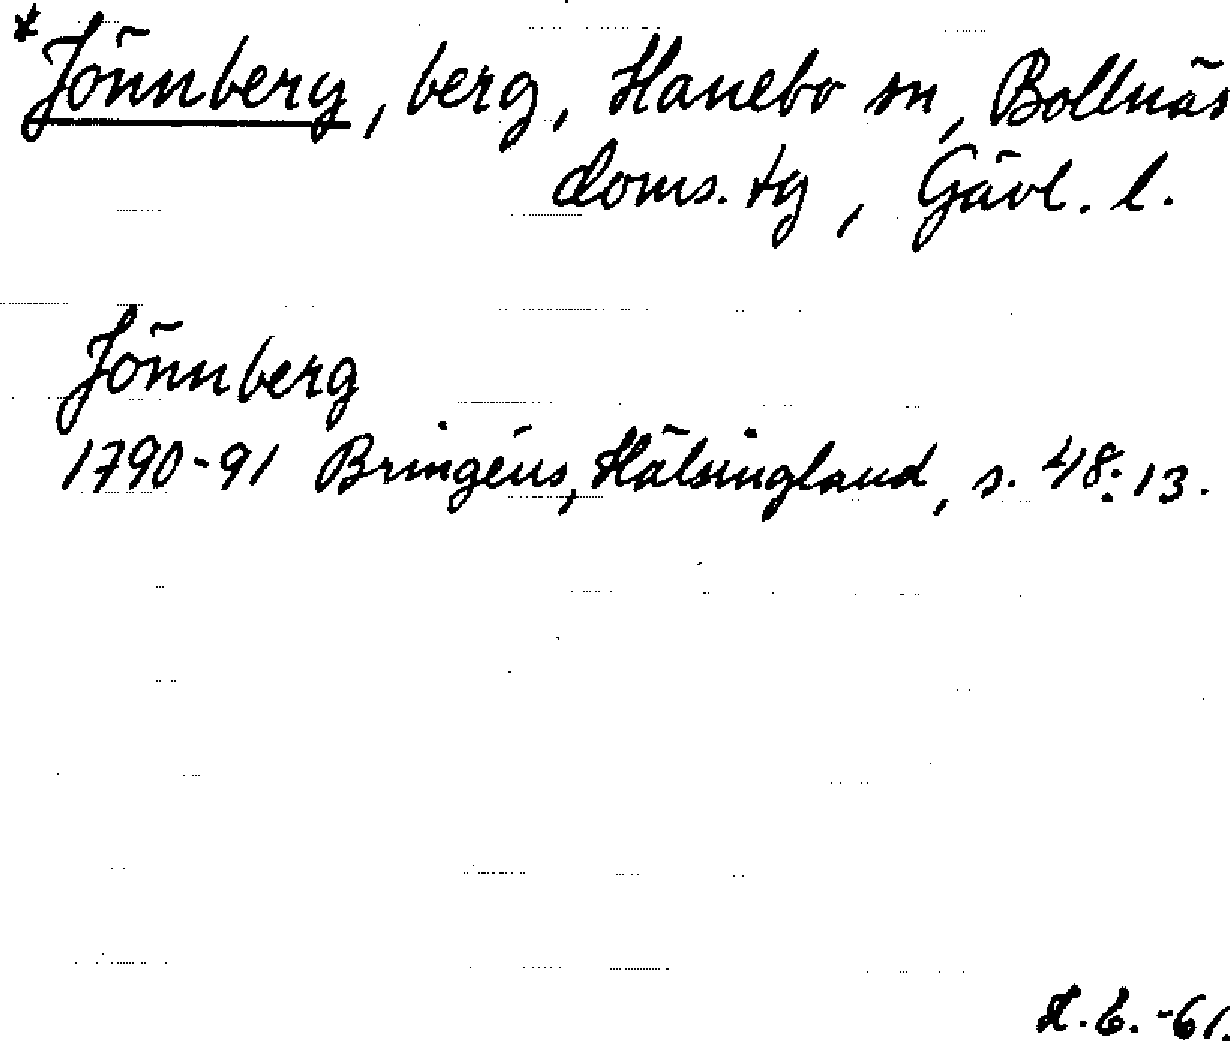 * Jönnberg, berg, Hanebo sn, Bollnäs
doms. tg, Gävl. l.
Jönnberg
1790-91 Bringéus, Hälsingland, s. 48: 13.
-61.